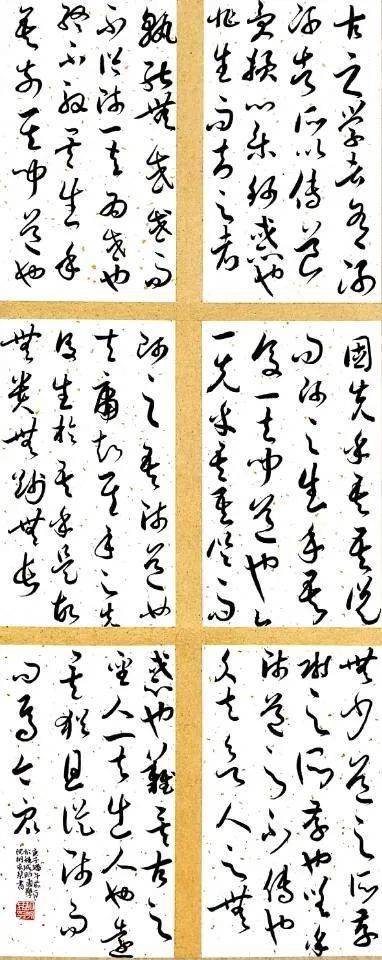 古之学者必有师
师者所以传道
受業解惑也人
非生而知之者
孰能無惑惑而
不從师其为惑也
终不解矣生乎
吾前其聞道也
固先乎吾吾從
而师之生乎吾
後其聞道也亦
先乎吾吾從而
师之吾师道也
夫庸知其年之先
後生於吾乎是故
無貴無賤無長
無少道之所存
师之所存也嗟乎
师道之不傳也
久矣欲人之無
惑也難矣古之
聖人其出人也遠
矣猶且從师而
问焉今之眾